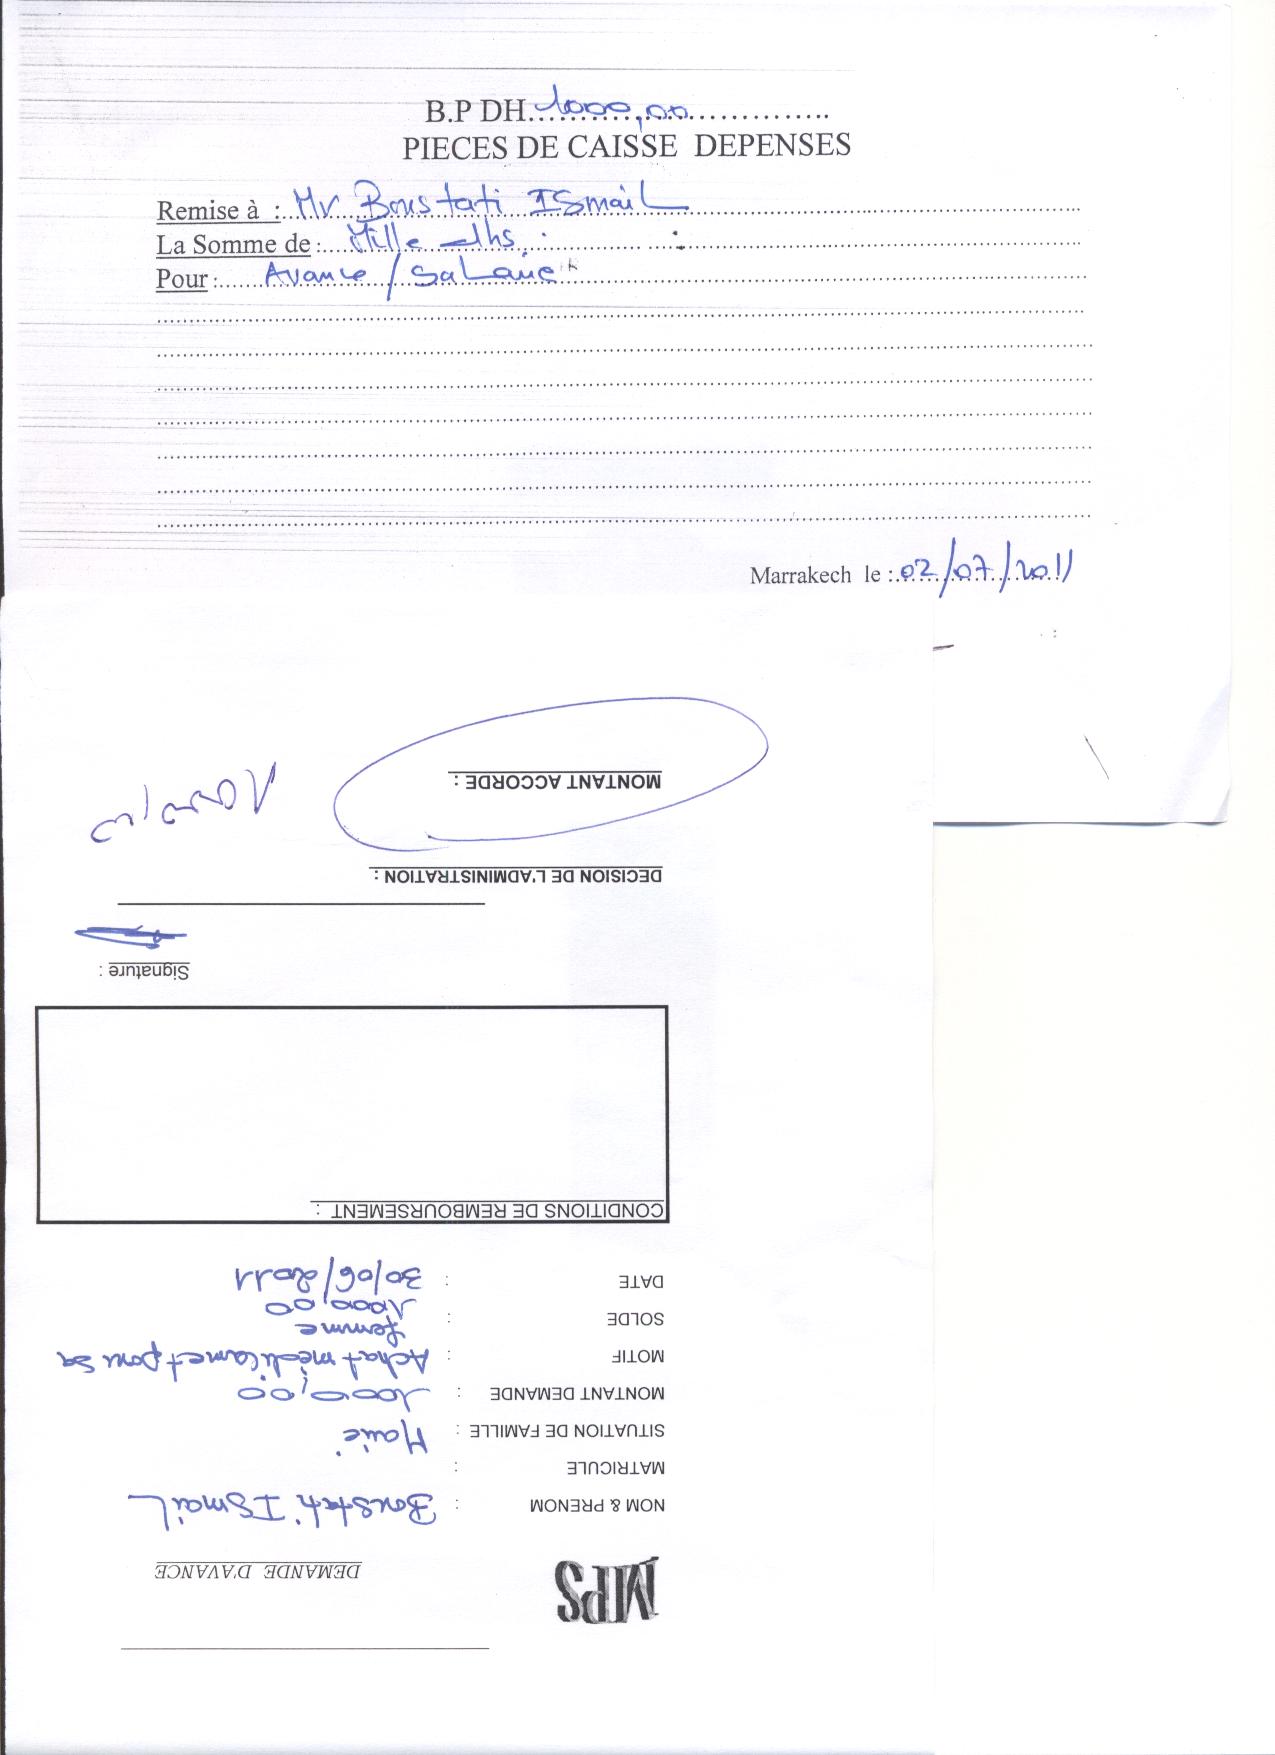 B.P DH 1000,00
PIECES DE CAISSE DEPENSES
Remise à : Mr Boustati ISmaiL
La Somme de : Mille dhs
Pour : Avance / SaLaire
Marrakech le : 02/07/2011
MPS
DEMANDE D'AVANCE
NOM & PRENOM : Boustati ISmaiL
MATRICULE :
SITUATION DE FAMILLE : Marié
MONTANT DEMANDE : 1000,00
MOTIF : Achat médicamet pour sa
femme
SOLDE : 1000,00
DATE : 30/06/2011
CONDITIONS DE REMBOURSEMENT :
Signature :
DECISION DE L'ADMINISTRATION :
MONTANT ACCORDE :